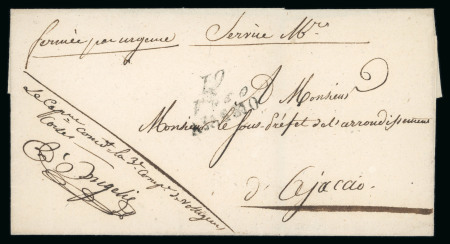 fermée par urgence Service Mre
A Monsieur
Monsieur le Sous-Préfet de l'arrondissement
d'Ajaccio.
Le Capne comdt la 3e Compie de Voltigeurs
Corses